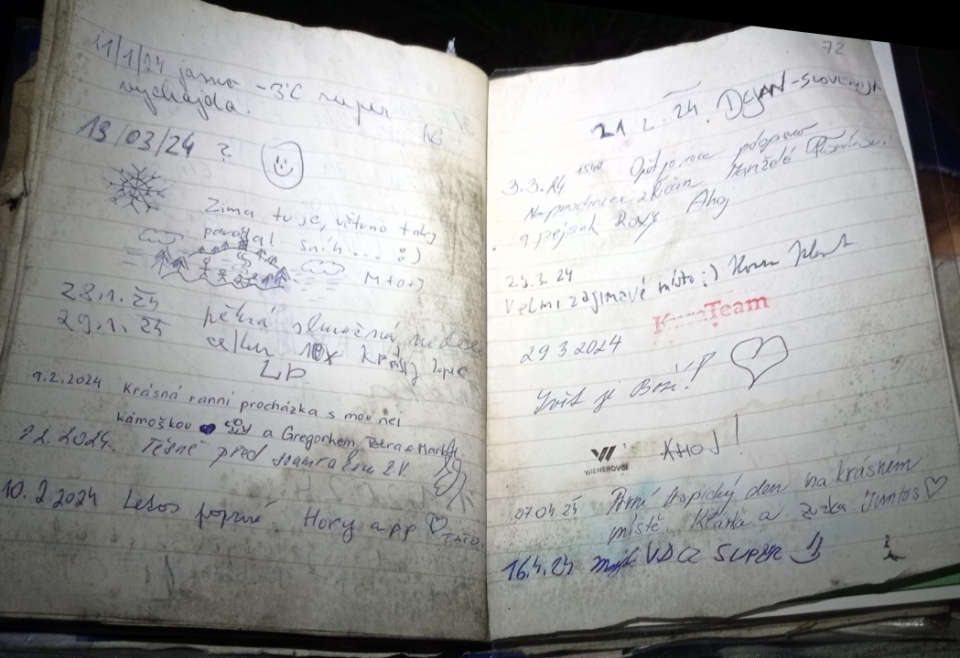 11/1/24 jasno -3°C super
vycházka.
13/03/24 ?
Zima tu je, větrno taky
padal sníh... :)
M+O+J
28.1. 24
29.1. 24
pěkná slunečná neděle
celkem 10x krásný
LP
9.2.2024 Krásná ranní procházka s mou nej
kámoškou a Gregorkem, Petra a Markét
9.2.2024. Těsně před
10.2 2024 Letos poprvé. Hory app
72
21.2.24. DEJAN-SLOVENIJA
3.3.24 1540 Opět po roce
Na procházce
a pejsek Roxy Ahoj
23.3.24
Velmi zajímavé místo :)
Team
29.3.2024
Svět je Boží!
WIENEROVCI
AHOJ!
07.04.24 První tropický den na krásném
místě. Klárka a Zuzka Juntos
16.4.24 VDCZ SUPER